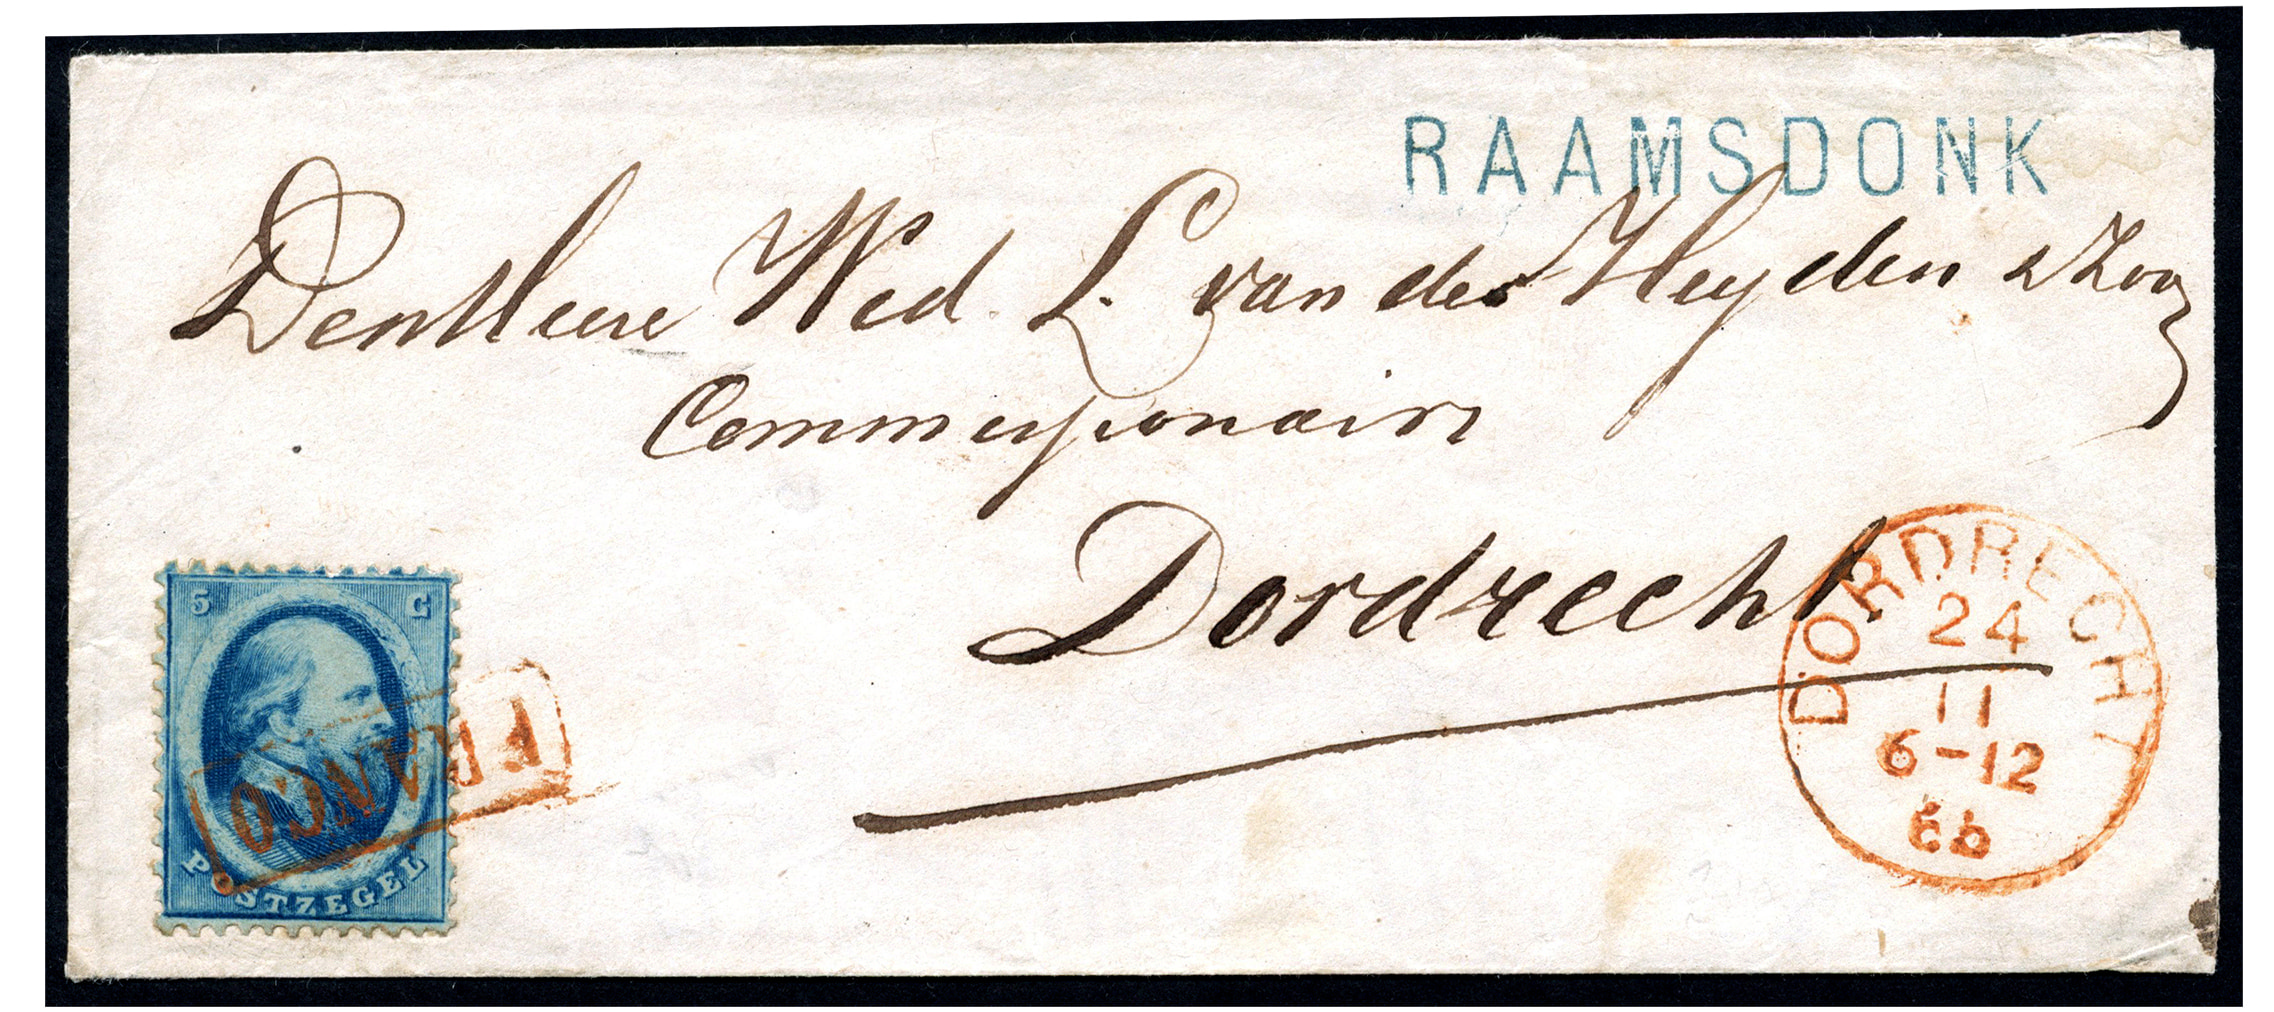 RAAMSDONK
Den Heere Wed. L. van der Heyden & Zoon
Commissionairs
Dordrecht
5 C
POSTZEGEL
FRANCO
DORDRECHT
24
11
6-12
66